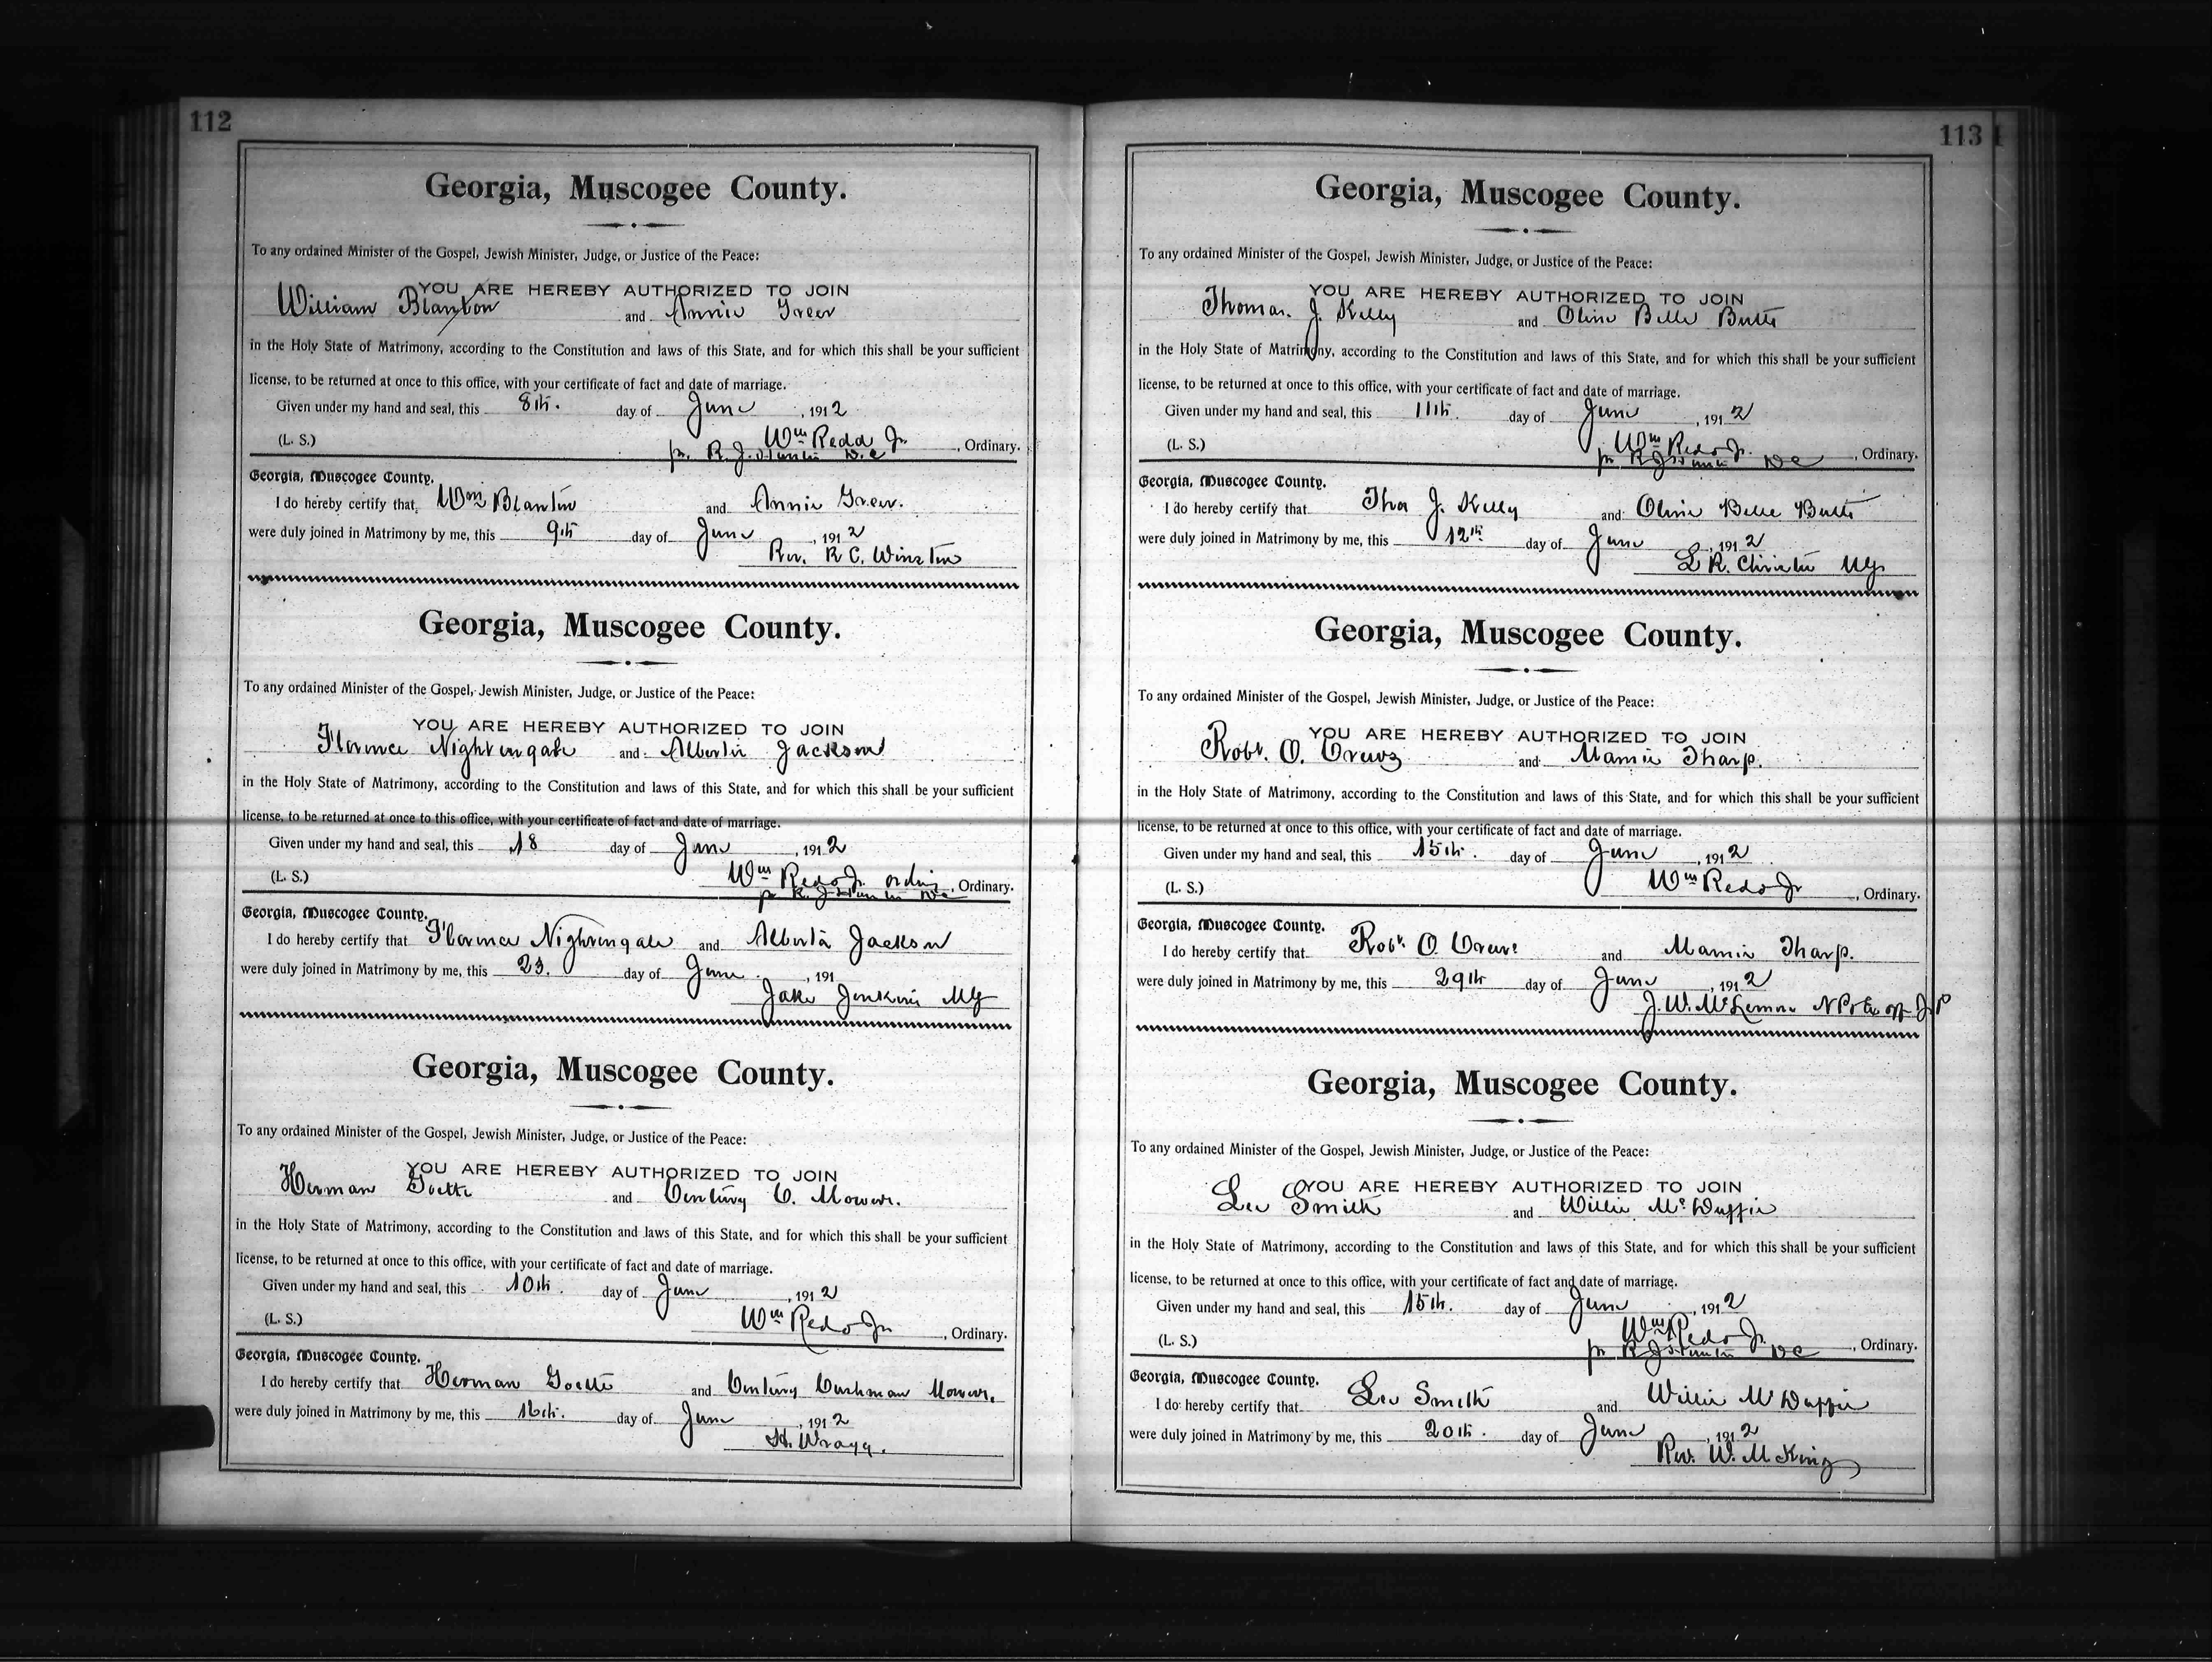 112
Georgia, Muscogee County.
To any ordained Minister of the Gospel, Jewish Minister, Judge, or Justice of the Peace:
YOU ARE HEREBY AUTHORIZED TO JOIN
William Blanton and Annie Greer
in the Holy State of Matrimony, according to the Constitution and laws of this State, and for which this shall be your sufficient
license, to be returned at once to this office, with your certificate of fact and date of marriage.
Given under my hand and seal, this 8th. day of June, 1912
Wm Redd Jr.
(L. S.) , Ordinary.
pr. R. J. DC
Georgia, Muscogee County.
I do hereby certify that Wm Blanton and Annie Greer.
were duly joined in Matrimony by me, this 9th day of June, 1912
Rev. R C. Winston
Georgia, Muscogee County.
To any ordained Minister of the Gospel, Jewish Minister, Judge, or Justice of the Peace:
YOU ARE HEREBY AUTHORIZED TO JOIN
Florence Nightingale and Alberta Jackson
in the Holy State of Matrimony, according to the Constitution and laws of this State, and for which this shall be your sufficient
license, to be returned at once to this office, with your certificate of fact and date of marriage.
Given under my hand and seal, this 18 day of June, 1912
Wm Redd Jr. ordiny
(L. S.) , Ordinary.
pr R. J. DC
Georgia, Muscogee County.
I do hereby certify that Florence Nightingale and Alberta Jackson
were duly joined in Matrimony by me, this 23. day of June, 191
Jake Jenkins MG
Georgia, Muscogee County.
To any ordained Minister of the Gospel, Jewish Minister, Judge, or Justice of the Peace:
YOU ARE HEREBY AUTHORIZED TO JOIN
Herman Goette and Century C. Mower.
in the Holy State of Matrimony, according to the Constitution and laws of this State, and for which this shall be your sufficient
license, to be returned at once to this office, with your certificate of fact and date of marriage.
Given under my hand and seal, this 10th. day of June, 1912
(L. S.) Wm Redd Jr , Ordinary.
Georgia, Muscogee County.
I do hereby certify that Herman Goette and Century Cushman Mower.
were duly joined in Matrimony by me, this 16th. day of June, 1912
H. Wragg.
113
Georgia, Muscogee County.
To any ordained Minister of the Gospel, Jewish Minister, Judge, or Justice of the Peace:
YOU ARE HEREBY AUTHORIZED TO JOIN
Thomas. J. Kelly and Olive Belle Butts
in the Holy State of Matrimony, according to the Constitution and laws of this State, and for which this shall be your sufficient
license, to be returned at once to this office, with your certificate of fact and date of marriage.
Given under my hand and seal, this 11th. day of June, 1912
Wm Redd Jr.
(L. S.) , Ordinary.
pr R J DC
Georgia, Muscogee County.
I do hereby certify that Thos J. Kelly and Olive Belle Butts
were duly joined in Matrimony by me, this 12th day of June, 1912
L R. Christie MG
Georgia, Muscogee County.
To any ordained Minister of the Gospel, Jewish Minister, Judge, or Justice of the Peace:
YOU ARE HEREBY AUTHORIZED TO JOIN
Robt. O. Crews and Mamie Tharp.
in the Holy State of Matrimony, according to the Constitution and laws of this State, and for which this shall be your sufficient
license, to be returned at once to this office, with your certificate of fact and date of marriage.
Given under my hand and seal, this 15th. day of June, 1912
(L. S.) Wm Redd Jr , Ordinary.
Georgia, Muscogee County.
I do hereby certify that Robt. O. Crews and Mamie Tharp.
were duly joined in Matrimony by me, this 29th day of June, 1912
J. W. McLemore N P & Ex off J P
Georgia, Muscogee County.
To any ordained Minister of the Gospel, Jewish Minister, Judge, or Justice of the Peace:
YOU ARE HEREBY AUTHORIZED TO JOIN
Lee Smith and Willie McDuffie
in the Holy State of Matrimony, according to the Constitution and laws of this State, and for which this shall be your sufficient
license, to be returned at once to this office, with your certificate of fact and date of marriage.
Given under my hand and seal, this 15th. day of June, 1912
Wm Redd Jr.
(L. S.) , Ordinary.
pr R J DC
Georgia, Muscogee County.
I do hereby certify that Lee Smith and Willie McDuffie
were duly joined in Matrimony by me, this 20th. day of June, 1912
Rev. W. M King